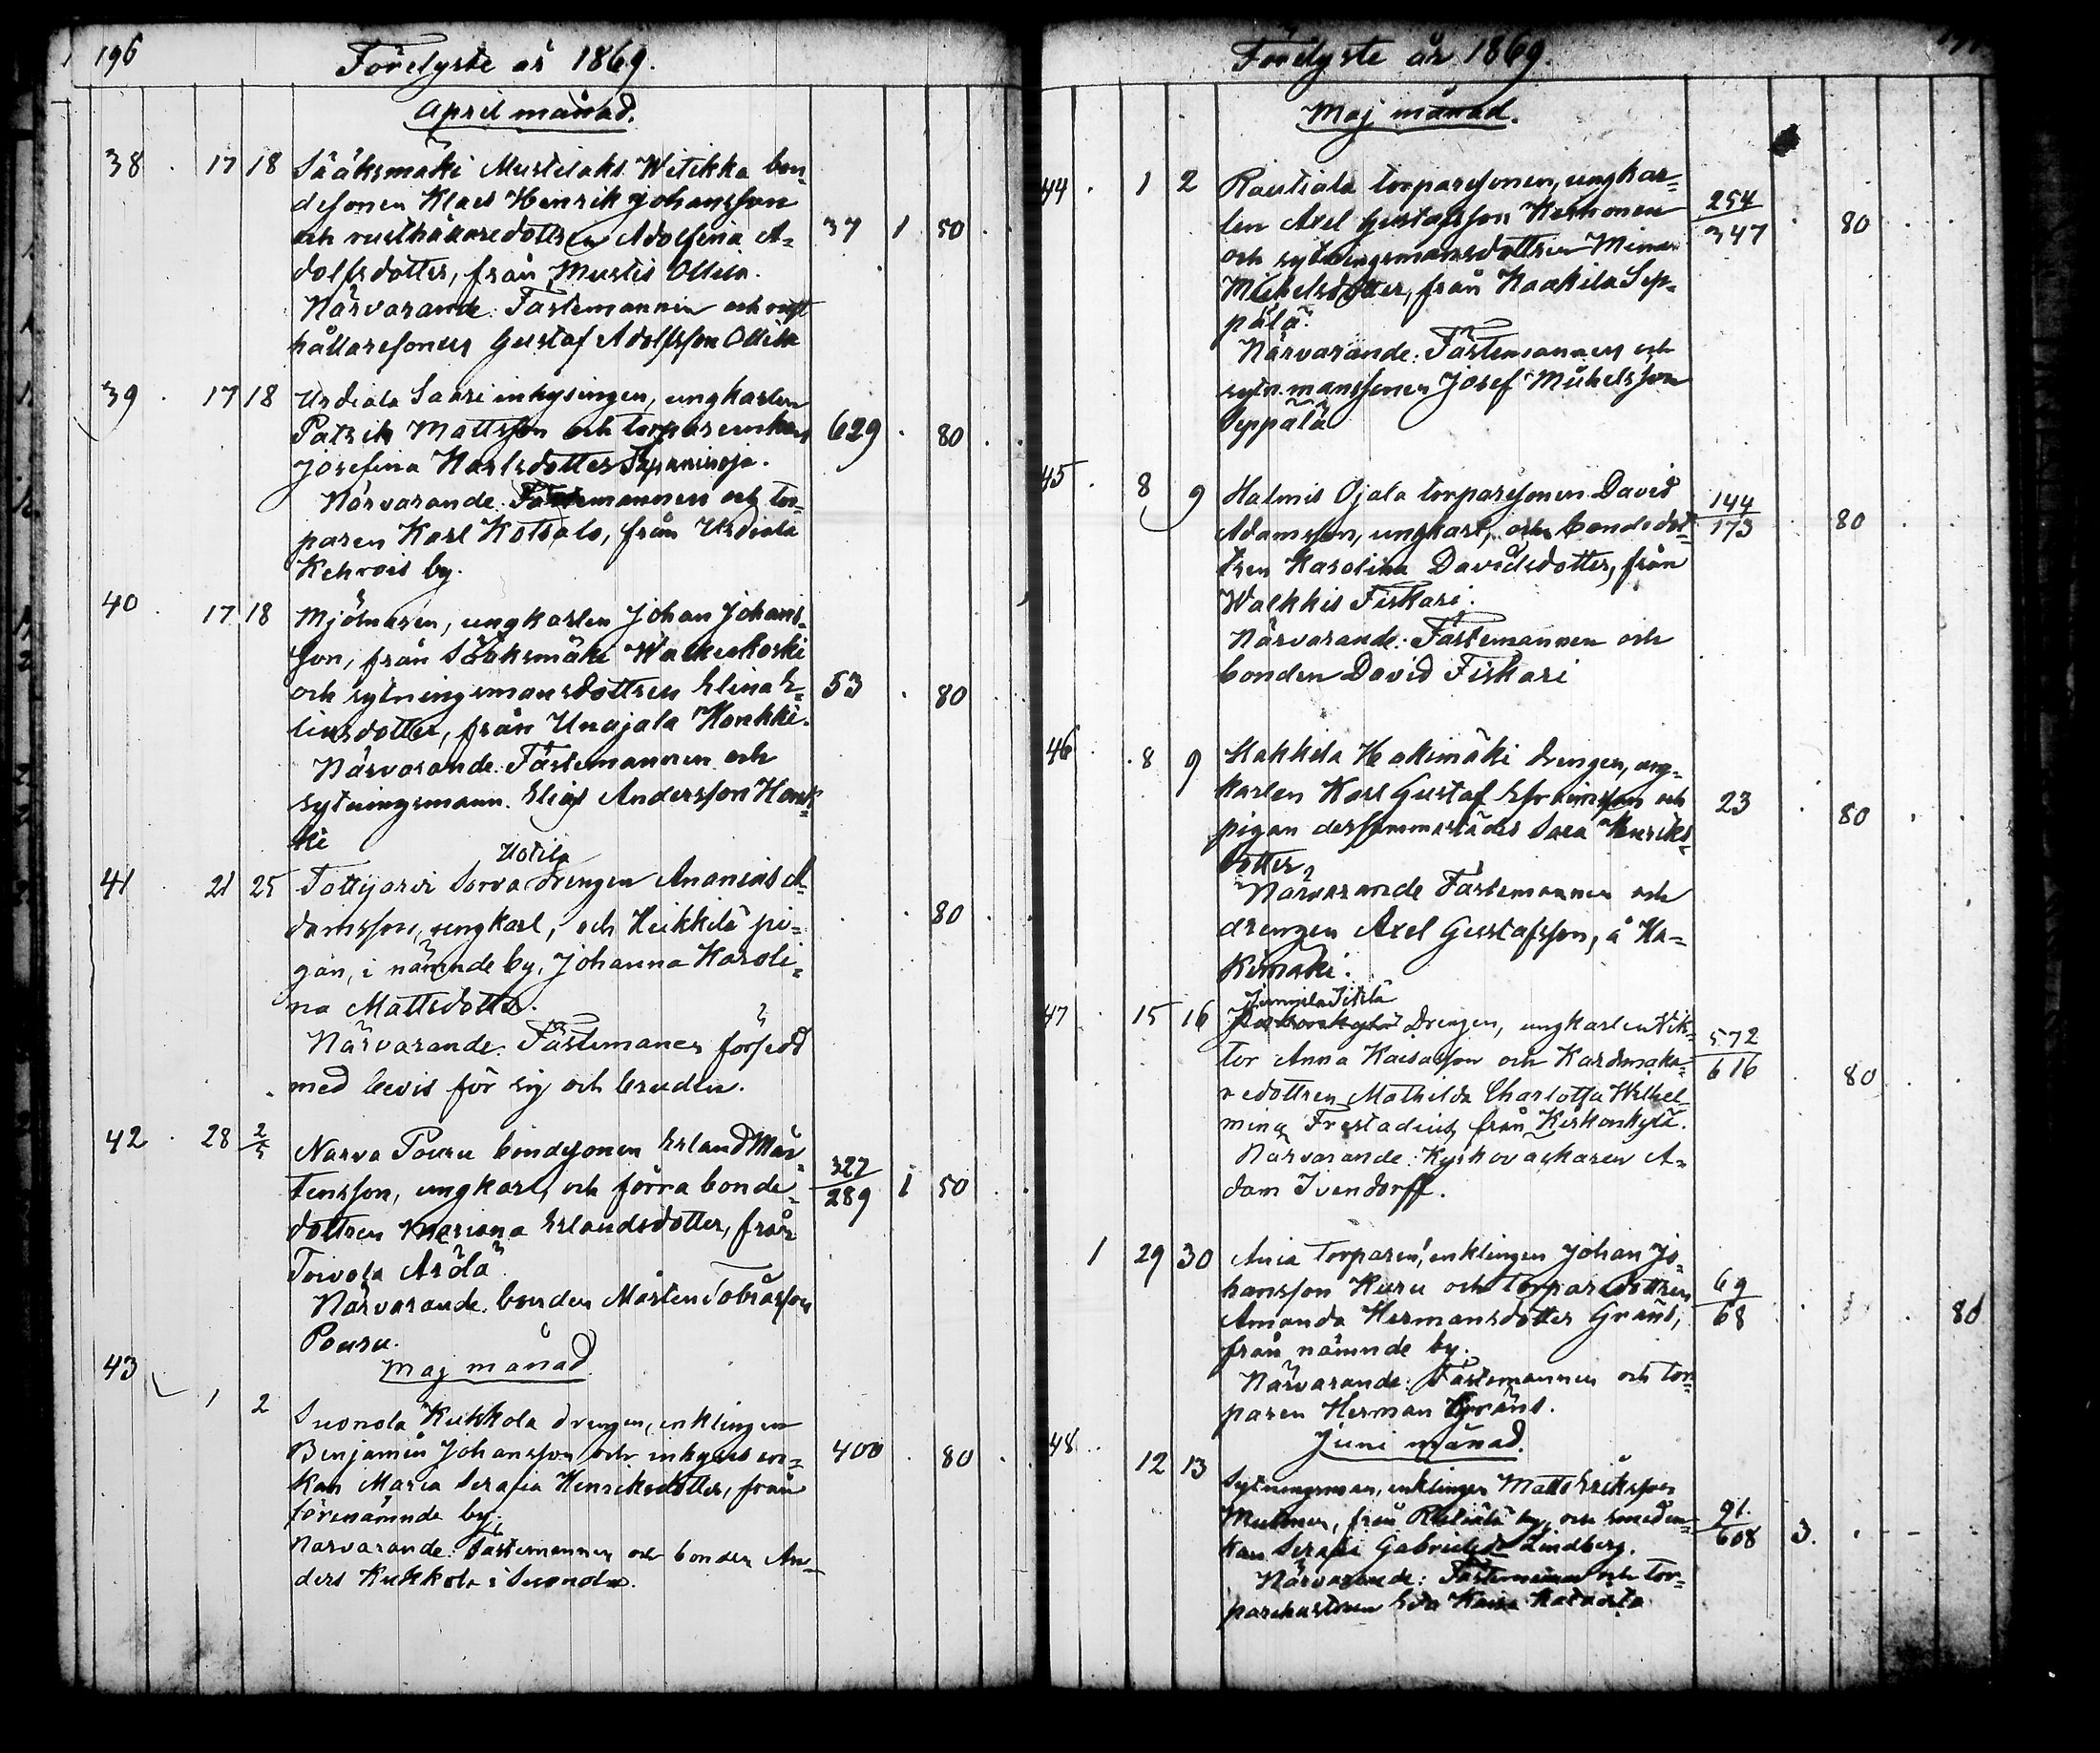 196
Förelyste år 1869.
April månad.
38 . 17 18 Sääksmäki Mustilaks Witikka bon-
desonen Klaes Henrik Johansson
och rusthållaredottren Adolfina A- 37 1 50
dolfsdotter, från Mustis Ollila.
Närvarande: Fästemannen och rust
hållaresonen Gustaf Adolfsson Ollila
39 . 17 18 Urdiala Saari inhysingen, ungkarlen
Patrik Mattsson och torpareenkan 629 . 80
Josefina Karlsdotter
Närvarande: Fästemannen och tor-
paren Karl Kotsalo, från Urdiala
Kehrois by.
40 . 17 18 Mjölnaren, ungkarlen Johan Johans-
son, från Sääksmäki Walkiakoski
och sytningsmansdottren Elina E- 53 . 80
liasdotter, från Unajala Honkki.
Närvarande: Fästemannen och
sytningsmann. Elias Andersson Honk-
ki
Uotila
41 . 21 25 Tottijärvi Sorva drengen Ananias A-
damsson, ungkarl, och Heikkilä pi- . . 80
gan, i nämnde by, Johanna Karoli-
na Mattsdotter.
Närvarande: Fästemanen försedd
med bevis för sig och bruden.
42 . 28 2/5 Narva Pouru bondesonen Erland Mår-
tensson, ungkarl, och förra bonde- 327/289 1 50
dottren Mariana Erlandsdotter, från
Toivola Arölä
Närvarande: bonden Mårten Tobiasson
Pouru.
43
Maj månad
1 2 Suonola Kukkola drengen, enklingen
Benjamin Johansson och inhyses en- 400 . 80
kan Maria Serafia Henriksdotter, från
förenämnde by.
Närvarande: Fästemannen och bonden An-
ders Kukkola i Suonola.
Förelyste år 1869.
Maj månad.
44 . 1 2 Rautiala torparesonen, ungkar-
len Axel Gustafsson Kerhonen 254/347 . 80
och sytningsmansdottren Mina
Michelsdotter, från Kaakila Sep-
pälä.
Närvarande: Fästemannen och
sytn.manssonen Josef Michelsson
Seppälä
45 . 8 9 Halmis Ojala torparesonen David
Adamsson, ungkarl, och bondedot- 144/173 . 80
tren Karolina Davidsdotter, från
Walkkis Fiskari.
Närvarande: Fästemannen och
bonden David Fiskari
46 . 8 9 Hakkila Hakimäki drengen, ung-
karlen Karl Gustaf Efraimsson och 23 . 80
pigan dersammastädes Sara Henriks-
dotter,
Närvarande Fästemannen och
drengen Axel Gustafsson, å Ha-
kimäki.
47 15 16 Drengen, ungkarlen Vik-
tor Anna Kaisasson och Kardmaka- 572/616 . 80
redottren Mathilda Charlotta Wilhel-
mina Frestadius, från Kirkonkylä.
Närvarande: Kyrkovaktaren A-
dam Ivendorff.
1 29 30 Ania torparen, enklingen Johan Jo-
hansson Kuru och torparedottren 69/68
Amanda Hermansdotter Gräns, . 80
från nämnde by.
Närvarande: Fästemannen och tor-
paren Herman Gräns.
48 .
Juni månad.
12 13 Sytningsman, enklingen Matts Eriksson
från by, och smeden- 91/608 3.
kan Serafia Gabrielsdr Lindberg.
Närvarande: Fästemannen och tor-
parehustrun Eva Kaisa